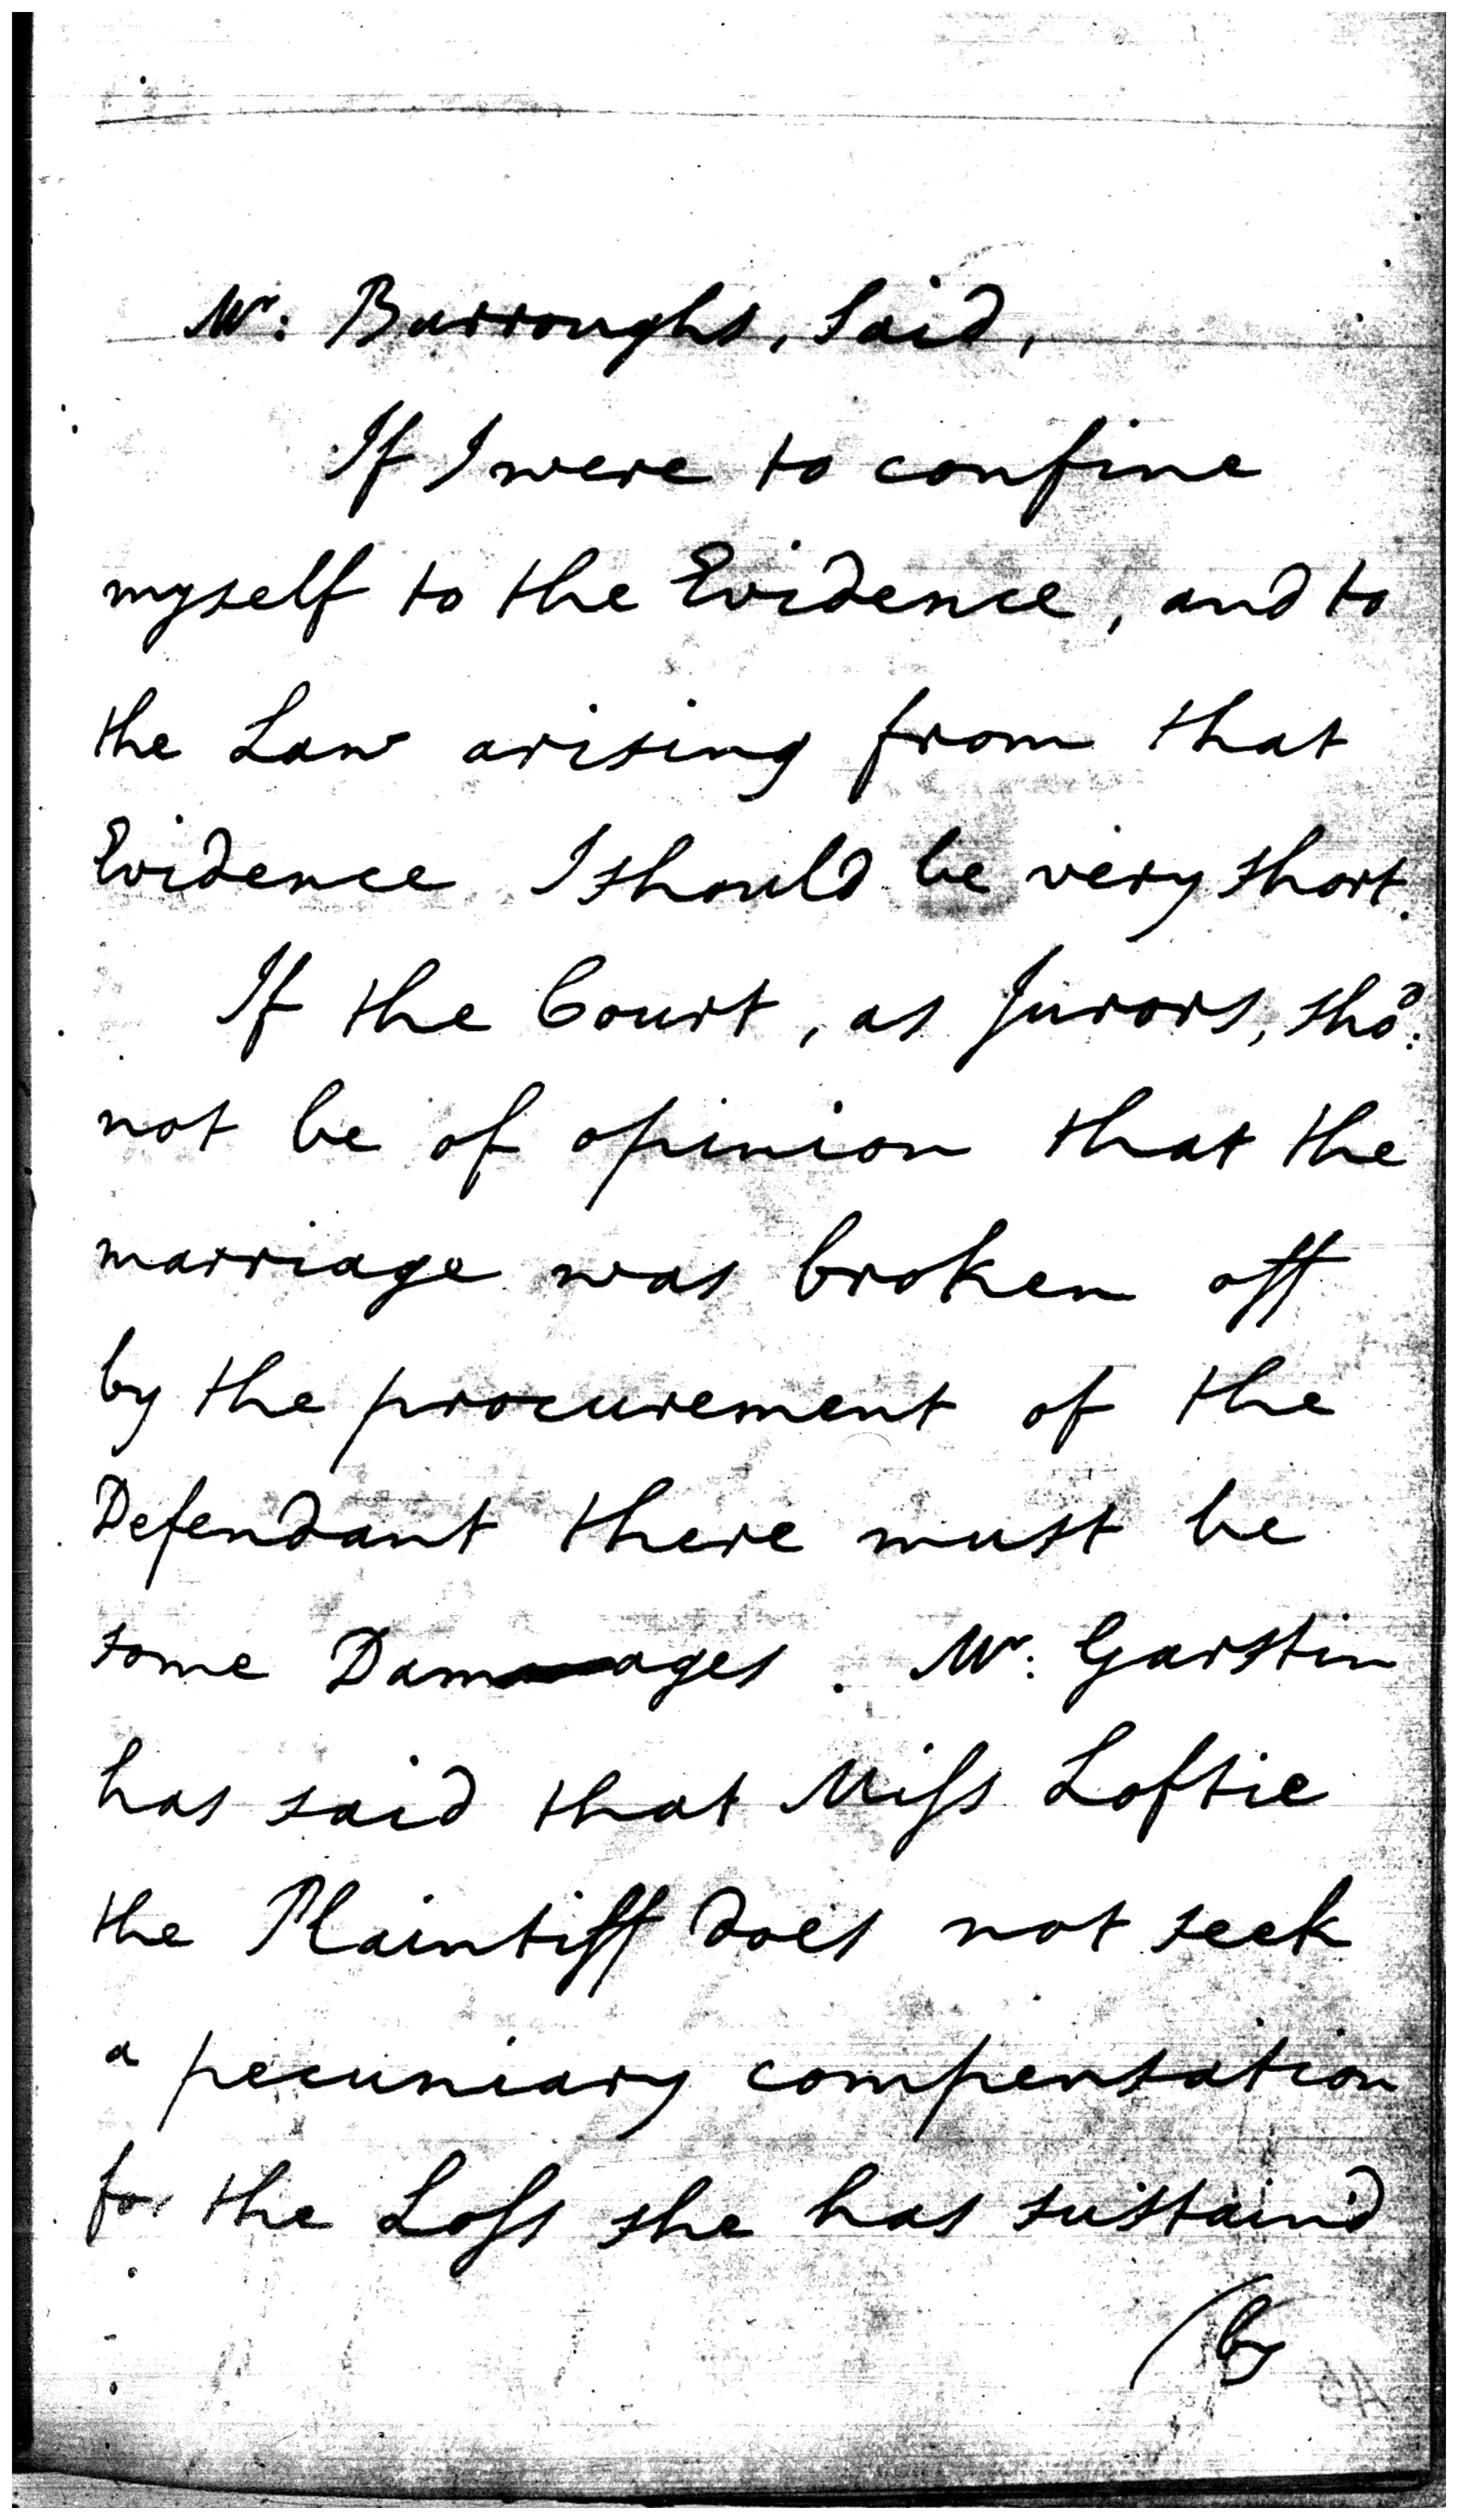 Mr: Burroughs, said,
If I were to confine
myself to the Evidence, and to
the Law arising from that
Evidence I should be very short.
If the Court, as Jurors, shod:
not be of opinion that the
marriage was broken off
by the procurement of the
Defendant there must be
some Damages. Mr: Garstin
has said that Miſs Loftie
the Plaintiff does not seek
a pecuniary compensation
for the Loſs she has sustaind
(by